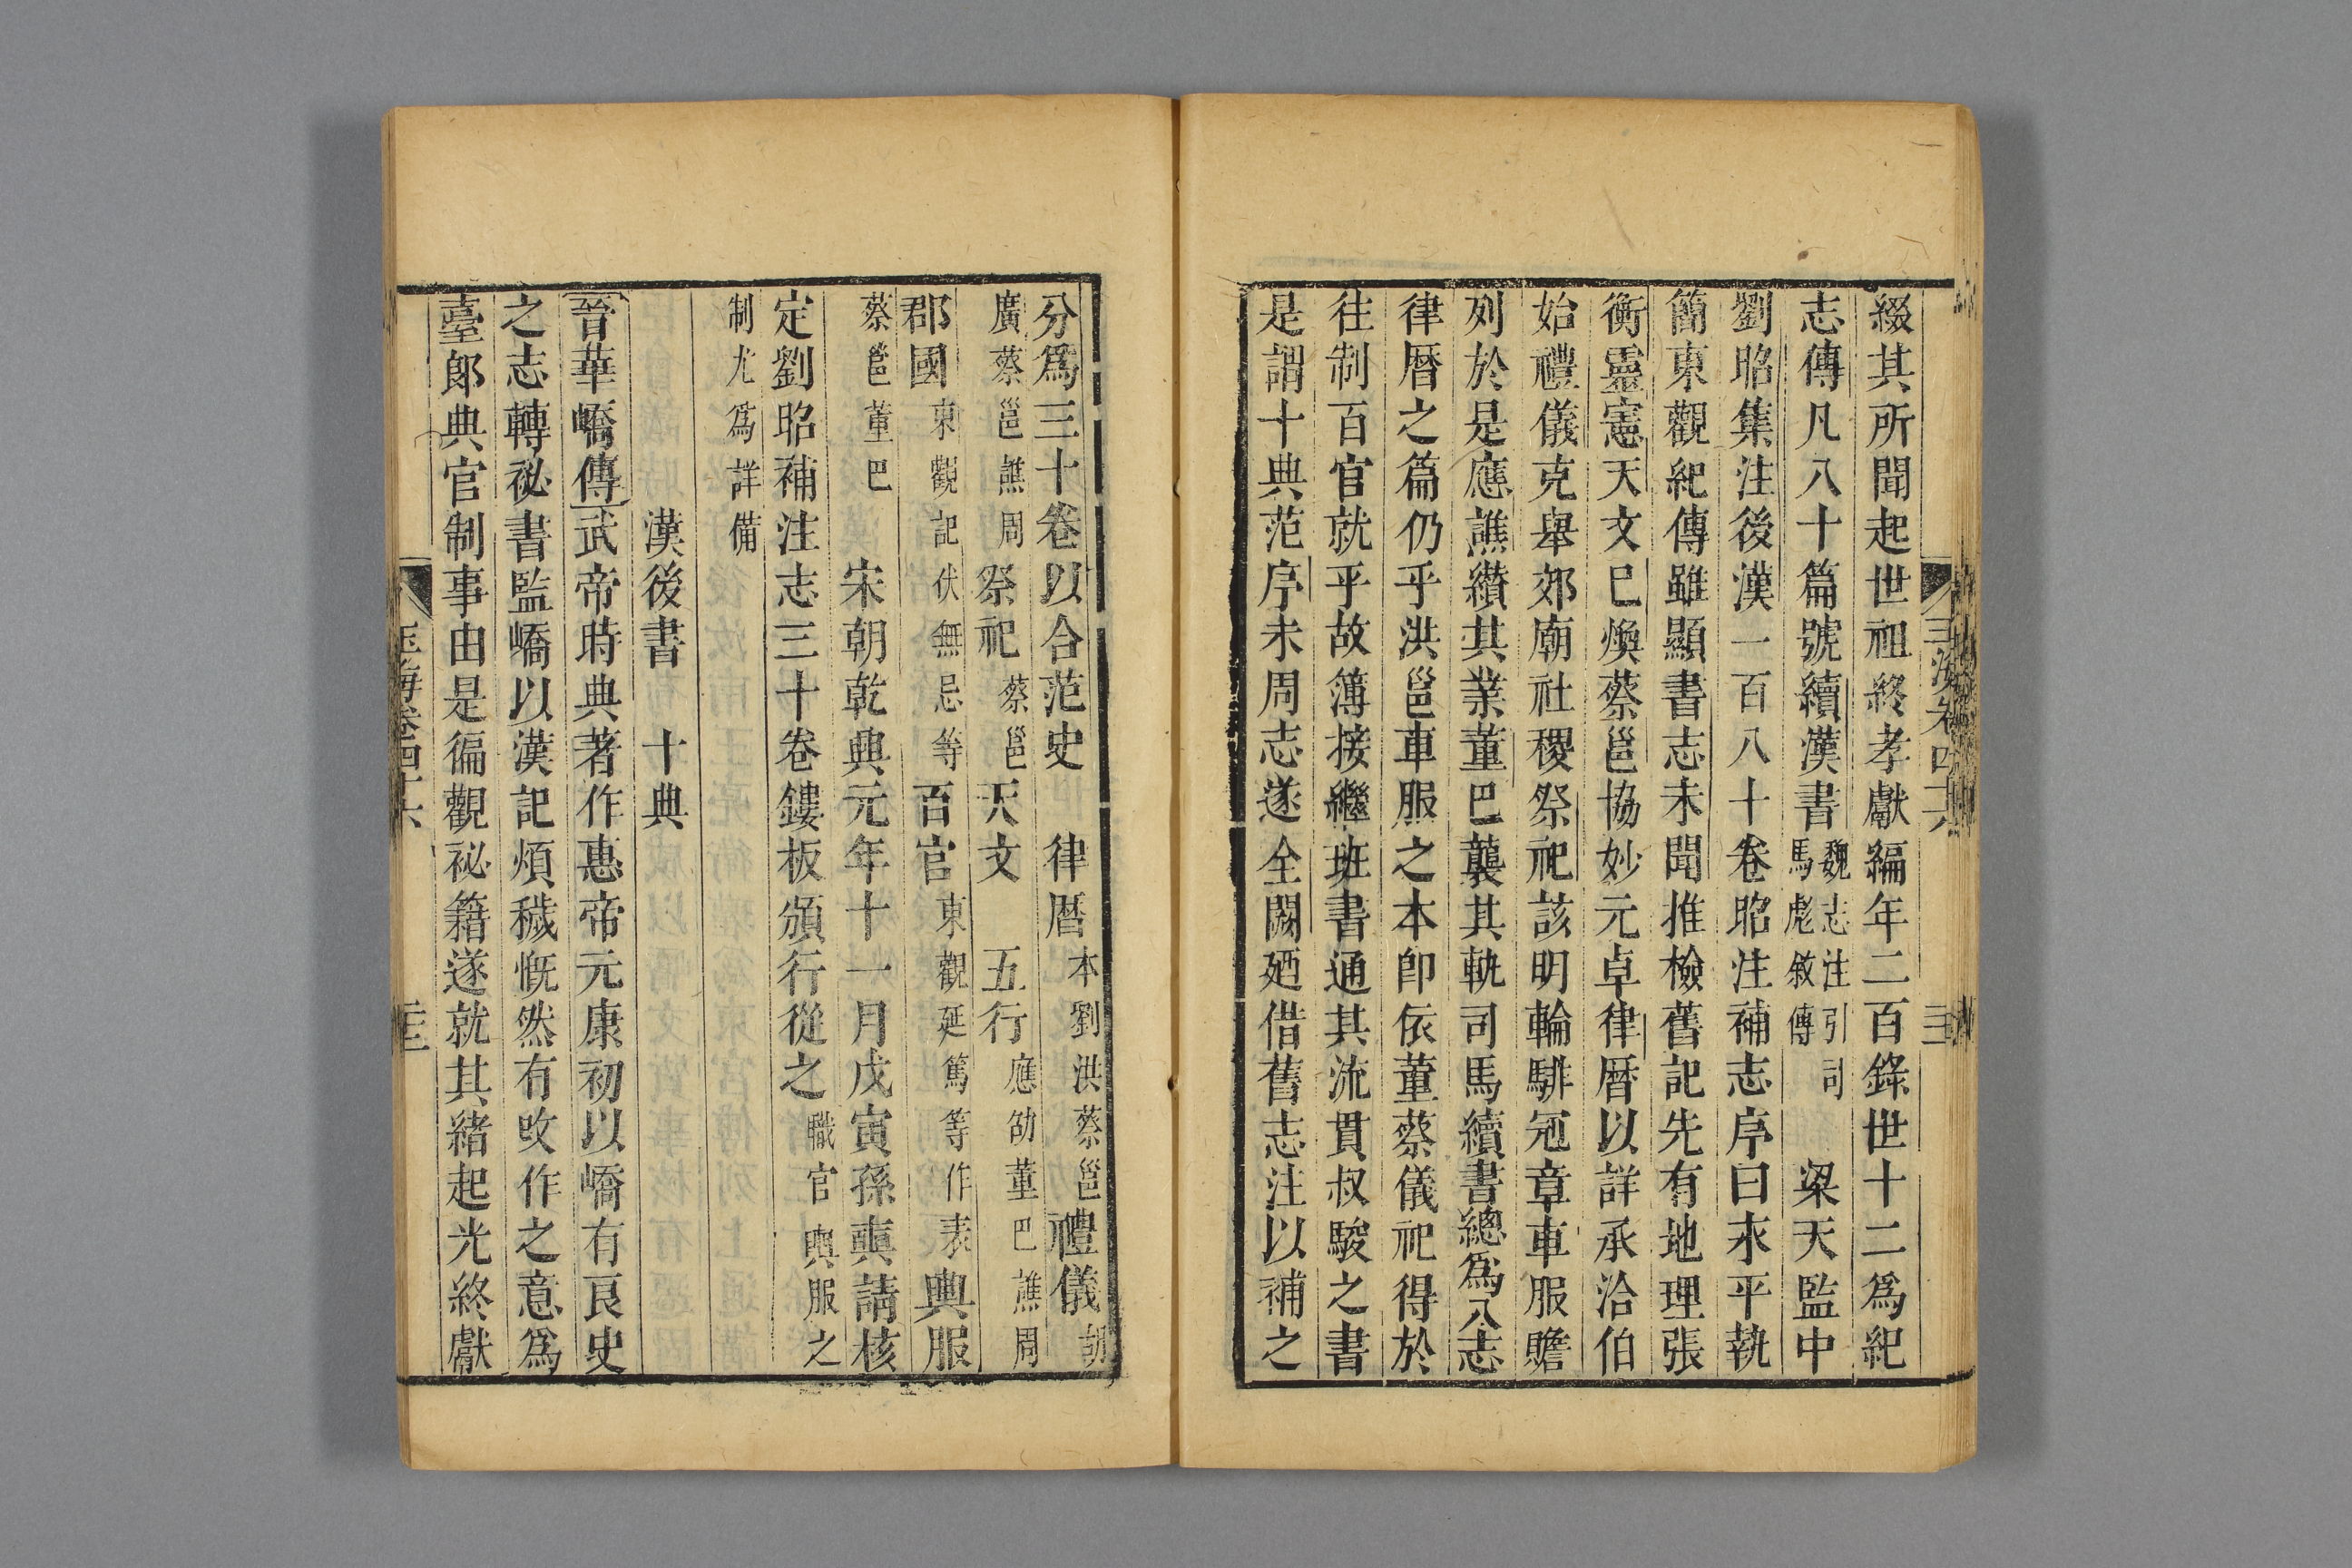 綴其所聞起世祖終孝獻編年二百錄世十二爲紀
志傳凡八十篇號續漢書魏志注引司馬彪敘傳 梁天監中
劉昭集注後漢一百八十卷昭注補志序曰永平執
簡東觀紀傳雖顯書志未聞推檢舊記先有地理張
衡靈憲天文巳煥蔡邕協妙元卓律曆以詳承洽伯
始禮儀克舉郊廟社稷祭祀該明輪騑冠章車服贍
列於是應譙纘其業董巴襲其軌司馬續書總爲八志
律曆之篇仍乎洪邕車服之本卽依董蔡儀祀得於
往制百官就乎故簿接繼班書通其流貫叔駿之書
是謂十典范序未周志遂全闕廼借舊志注以補之
分爲三十卷以合范史 律曆本劉洪蔡邕禮儀胡
廣蔡邕譙周祭祀蔡邕天文 五行應劭董巴譙周
郡國東觀記伏無忌等百官東觀延篤等作表輿服
蔡邕董巴 宋朝乾興元年十一月戊寅孫奭請校
定劉昭補注志三十卷鏤板頒行從之職官輿服之
制尤爲詳備
漢後書 十典
晉華嶠傳武帝時典著作惠帝元康初以嶠有良史
之志轉祕書監嶠以漢記煩穢慨然有改作之意爲
臺郞典官制事由是徧觀祕籍遂就其緒起光終獻
玉海卷四十六